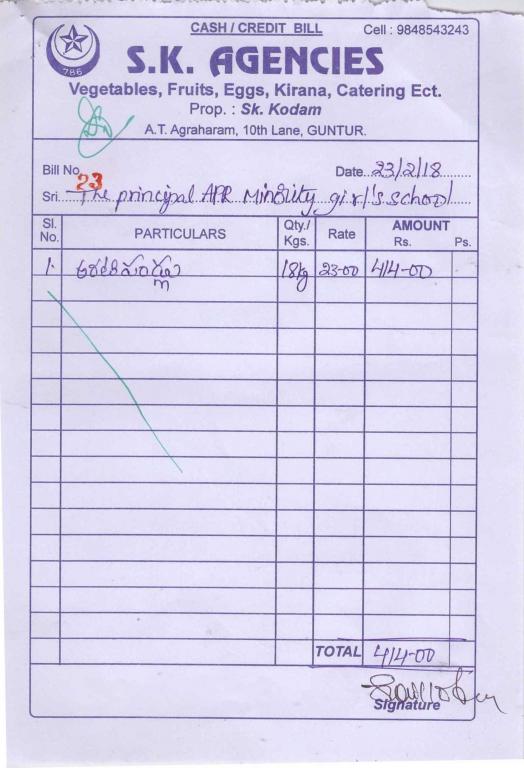 CASH / CREDIT BILL
Cell : 9848543243
786
S.K. AGENCIES
Vegetables, Fruits, Eggs, Kirana, Catering Ect.
Prop. : Sk. Kodam
A.T. Agraharam, 10th Lane, GUNTUR.
Bill No. 23 Date 23/2/18
Sri. The principal APR Minority girl's school
Sl. No. PARTICULARS Qty./ Kgs. Rate AMOUNT Rs. Ps.
1. 18kg 23-00 414-00
TOTAL 414-00
Signature